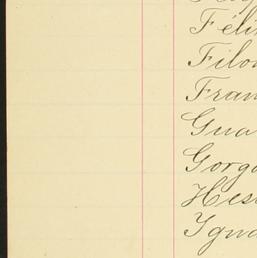 Féli
Filo
Fran
Gua
Gorg
Hes
Ygna